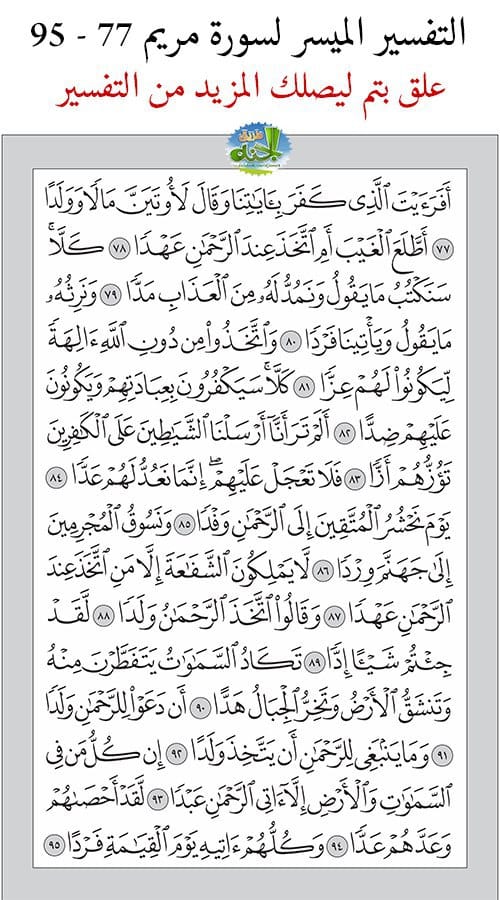 التفسير الميسر لسورة مريم 77 - 95
علق بتم ليصلك المزيد من التفسير
طريق
الجنة
أَفَرَءَيْتَ ٱلَّذِى كَفَرَ بِـَٔايَٰتِنَا وَقَالَ لَأُوتَيَنَّ مَالًا وَوَلَدًا
٧٧ أَطَّلَعَ ٱلْغَيْبَ أَمِ ٱتَّخَذَ عِندَ ٱلرَّحْمَٰنِ عَهْدًا ٧٨ كَلَّا ۚ
سَنَكْتُبُ مَا يَقُولُ وَنَمُدُّ لَهُۥ مِنَ ٱلْعَذَابِ مَدًّا ٧٩ وَنَرِثُهُۥ
مَا يَقُولُ وَيَأْتِينَا فَرْدًا ٨٠ وَٱتَّخَذُوا۟ مِن دُونِ ٱللَّهِ ءَالِهَةً
لِّيَكُونُوا۟ لَهُمْ عِزًّا ٨١ كَلَّا ۚ سَيَكْفُرُونَ بِعِبَادَتِهِمْ وَيَكُونُونَ
عَلَيْهِمْ ضِدًّا ٨٢ أَلَمْ تَرَ أَنَّآ أَرْسَلْنَا ٱلشَّيَٰطِينَ عَلَى ٱلْكَٰفِرِينَ
تَؤُزُّهُمْ أَزًّا ٨٣ فَلَا تَعْجَلْ عَلَيْهِمْ ۖ إِنَّمَا نَعُدُّ لَهُمْ عَدًّا ٨٤
يَوْمَ نَحْشُرُ ٱلْمُتَّقِينَ إِلَى ٱلرَّحْمَٰنِ وَفْدًا ٨٥ وَنَسُوقُ ٱلْمُجْرِمِينَ
إِلَىٰ جَهَنَّمَ وِرْدًا ٨٦ لَّا يَمْلِكُونَ ٱلشَّفَٰعَةَ إِلَّا مَنِ ٱتَّخَذَ عِندَ
ٱلرَّحْمَٰنِ عَهْدًا ٨٧ وَقَالُوا۟ ٱتَّخَذَ ٱلرَّحْمَٰنُ وَلَدًا ٨٨ لَّقَدْ
جِئْتُمْ شَيْـًٔا إِدًّا ٨٩ تَكَادُ ٱلسَّمَٰوَٰتُ يَتَفَطَّرْنَ مِنْهُ
وَتَنشَقُّ ٱلْأَرْضُ وَتَخِرُّ ٱلْجِبَالُ هَدًّا ٩٠ أَن دَعَوْا۟ لِلرَّحْمَٰنِ وَلَدًا
٩١ وَمَا يَنۢبَغِى لِلرَّحْمَٰنِ أَن يَتَّخِذَ وَلَدًا ٩٢ إِن كُلُّ مَن فِى
ٱلسَّمَٰوَٰتِ وَٱلْأَرْضِ إِلَّآ ءَاتِى ٱلرَّحْمَٰنِ عَبْدًا ٩٣ لَّقَدْ أَحْصَىٰهُمْ
وَعَدَّهُمْ عَدًّا ٩٤ وَكُلُّهُمْ ءَاتِيهِ يَوْمَ ٱلْقِيَٰمَةِ فَرْدًا ٩٥